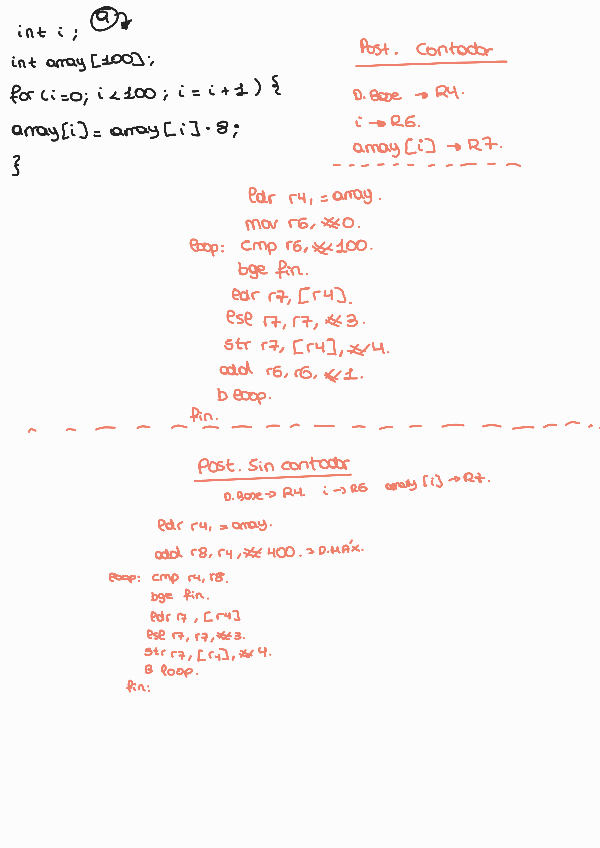 a
int i;
int array [100];
for (i=0; i<100; i = i+1) {
array[i] = array[i] · 8;
}
Post. Contador
D. Base → R4.
i → R6.
array [i] → R7.
ldr r4, = array.
mov r6, #0.
loop: cmp r6, #100.
bge fin.
ldr r7, [r4].
lsl r7, r7, #3.
str r7, [r4], #4.
add r6, r6, #1.
b loop.
fin.
Post. Sin contador
D. Base → R4. i → R6 array [i] → R7.
ldr r4, = array.
add r8, r4, #400. → D.MÁX.
loop: cmp r4, r8.
bge fin.
ldr r7, [r4]
lsl r7, r7, #3.
str r7, [r4], #4.
B loop.
fin: